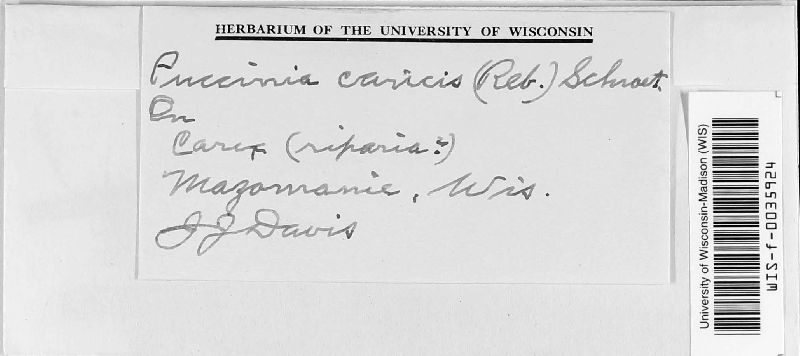 HERBARIUM OF THE UNIVERSITY OF WISCONSIN
Puccinia caricis (Reb.) Schroet.
On
Carex (riparia?)
Mazomanie, Wis.
J J Davis
University of Wisconsin-Madison (WIS)
WIS-f-0035924